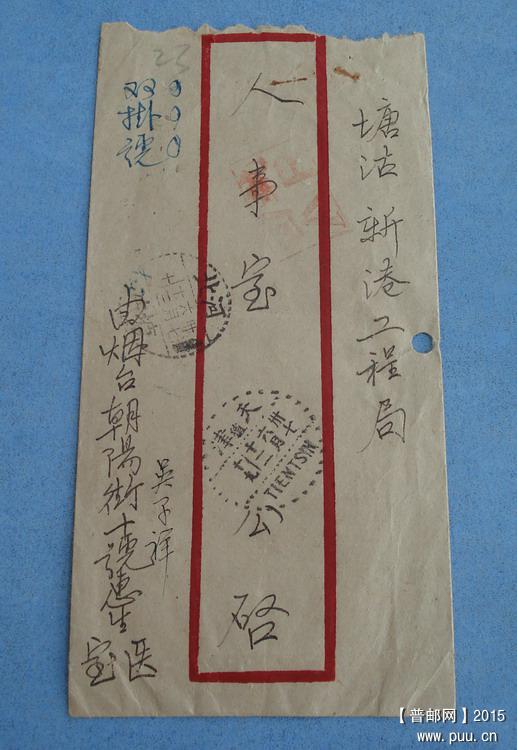 塘沽新港工程局
人事室 公啓
双掛號
由烟台朝陽街十號惠生医室
吴子祥
天津
TIENTSIN
【普邮网】2015
www.puu.cn